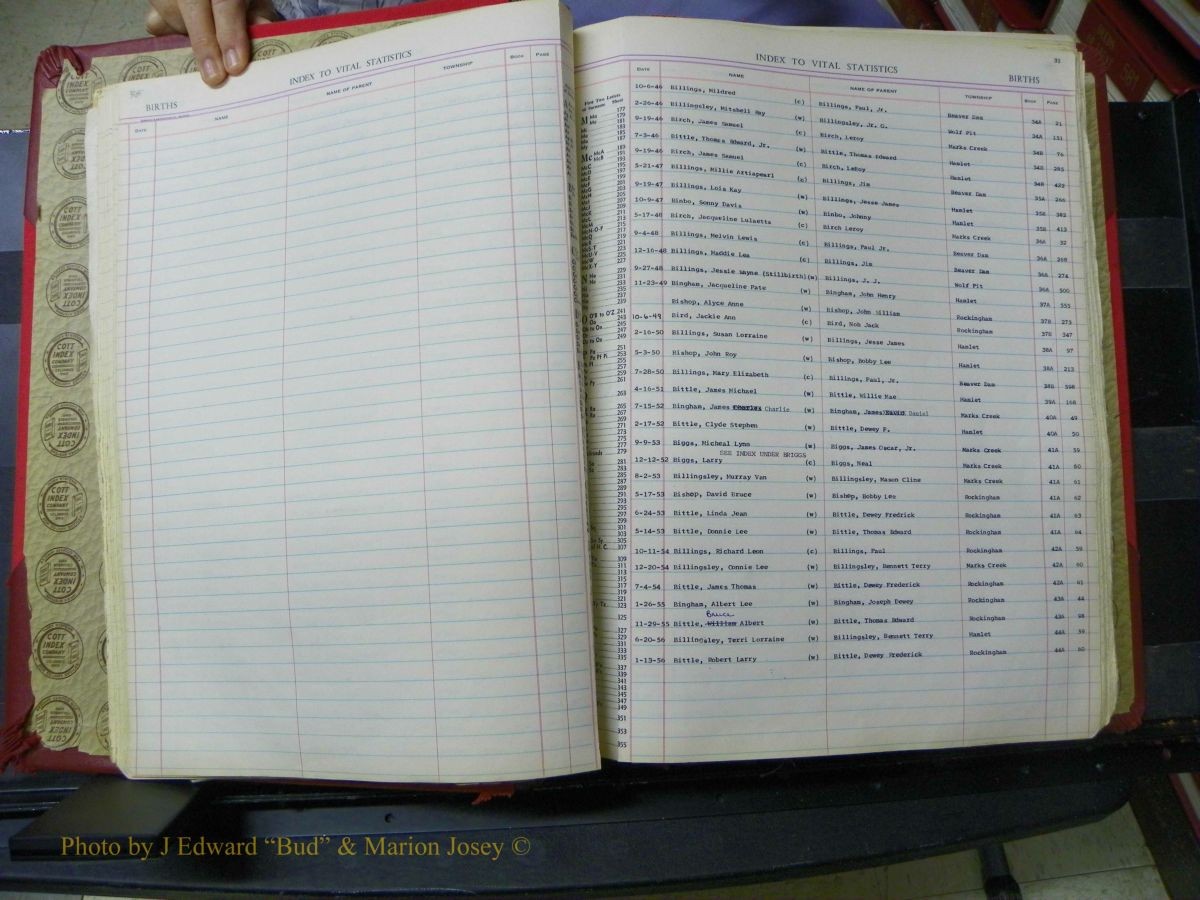 INDEX TO VITAL STATISTICS
BIRTHS
DATE NAME NAME OF PARENT TOWNSHIP BOOK PAGE
31
INDEX TO VITAL STATISTICS BIRTHS
DATE NAME NAME OF PARENT TOWNSHIP BOOK PAGE
10-6-46 Billings, Mildred (c) Billings, Paul, Jr. Beaver Dam 34A 21
2-26-46 Billingsley, Mitshell Ray (w) Billingsley, Jr. G. Wolf Pit 34A 131
9-19-46 Birch, James Samuel (c) Birch, Leroy Marks Creek 34B 76
7-3-46 Bittle, Thomas Edward, Jr. (w) Bittle, Thomas Edward Hamlet 34B 285
9-19-46 Birch, James Samuel (c) Birch, LeRoy Hamlet 34B 422
5-21-47 Billings, Millie Artiapearl (c) Billings, Jim Beaver Dam 35A 266
9-19-47 Billings, Lois Kay (w) Billings, Jesse James Hamlet 35B 382
10-9-47 Binbo, Sonny Davis (w) Binbo, Johnny Hamlet 35B 413
5-17-48 Birch, Jacqueline Lulaetta (c) Birch Leroy Marks Creek 36A 32
9-4-48 Billings, Melvin Lewis (c) Billings, Paul Jr. Beaver Dam 36A 268
12-16-48 Billings, Maddie Lea (c) Billings, Jim Beaver Dam 36A 274
9-27-48 Billings, Jessie Wayne (Stillbirth) (w) Billings, J. J. Wolf Pit 36A 500
11-23-49 Bingham, Jacqueline Pate (w) Bingham, John Henry Hamlet 37A 355
Bishop, Alyce Anne (w) Bishop, John William Rockingham 37B 273
10-6-49 Bird, Jackie Ann (c) Bird, Nob Jack Rockingham 37B 347
2-16-50 Billings, Susan Lorraine (w) Billings, Jesse James Hamlet 38A 97
5-3-50 Bishop, John Roy (w) Bishop, Bobby Lee Hamlet 38A 213
7-28-50 Billings, Mary Elizabeth (c) Billings, Paul, Jr. Beaver Dam 38B 598
4-16-51 Bittle, James Michael (w) Bittle, Willie Mae Hamlet 39A 168
7-15-52 Bingham, James Charles Charlie (w) Bingham, James David Daniel Marks Creek 40A 49
2-17-52 Bittle, Clyde Stephen (w) Bittle, Dewey F. Hamlet 40A 50
9-9-53 Biggs, Micheal Lynn (w) Biggs, James Oscar, Jr. Marks Creek 41A 59
SEE INDEX UNDER BRIGGS
12-12-52 Biggs, Larry (c) Biggs, Neal Marks Creek 41A 60
8-2-53 Billingsley, Murray Van (w) Billingsley, Mason Cline Marks Creek 41A 61
5-17-53 Bishop, David Bruce (w) Bishop, Bobby Lee Rockingham 41A 62
6-24-53 Bittle, Linda Jean (w) Bittle, Dewey Fredrick Rockingham 41A 63
5-14-53 Bittle, Donnie Lee (w) Bittle, Thomas Edward Rockingham 41A 64
10-11-54 Billings, Richard Leon (c) Billings, Paul Rockingham 42A 59
12-20-54 Billingsley, Connie Lee (w) Billingsley, Bennett Terry Marks Creek 42A 60
7-4-54 Bittle, James Thomas (w) Bittle, Dewey Frederick Rockingham 42A 61
1-26-55 Bingham, Albert Lee (w) Bingham, Joseph Dewey Rockingham 43A 44
Bruce
11-29-55 Bittle, William Albert (w) Bittle, Thomas Edward Rockingham 43A 98
6-20-56 Billingsley, Terri Lorraine (w) Billingsley, Bennett Terry Hamlet 44A 59
1-13-56 Bittle, Robert Larry (w) Bittle, Dewey Frederick Rockingham 44A 60
COTT INDEX COMPANY
Photo by J Edward “Bud” & Marion Josey ©